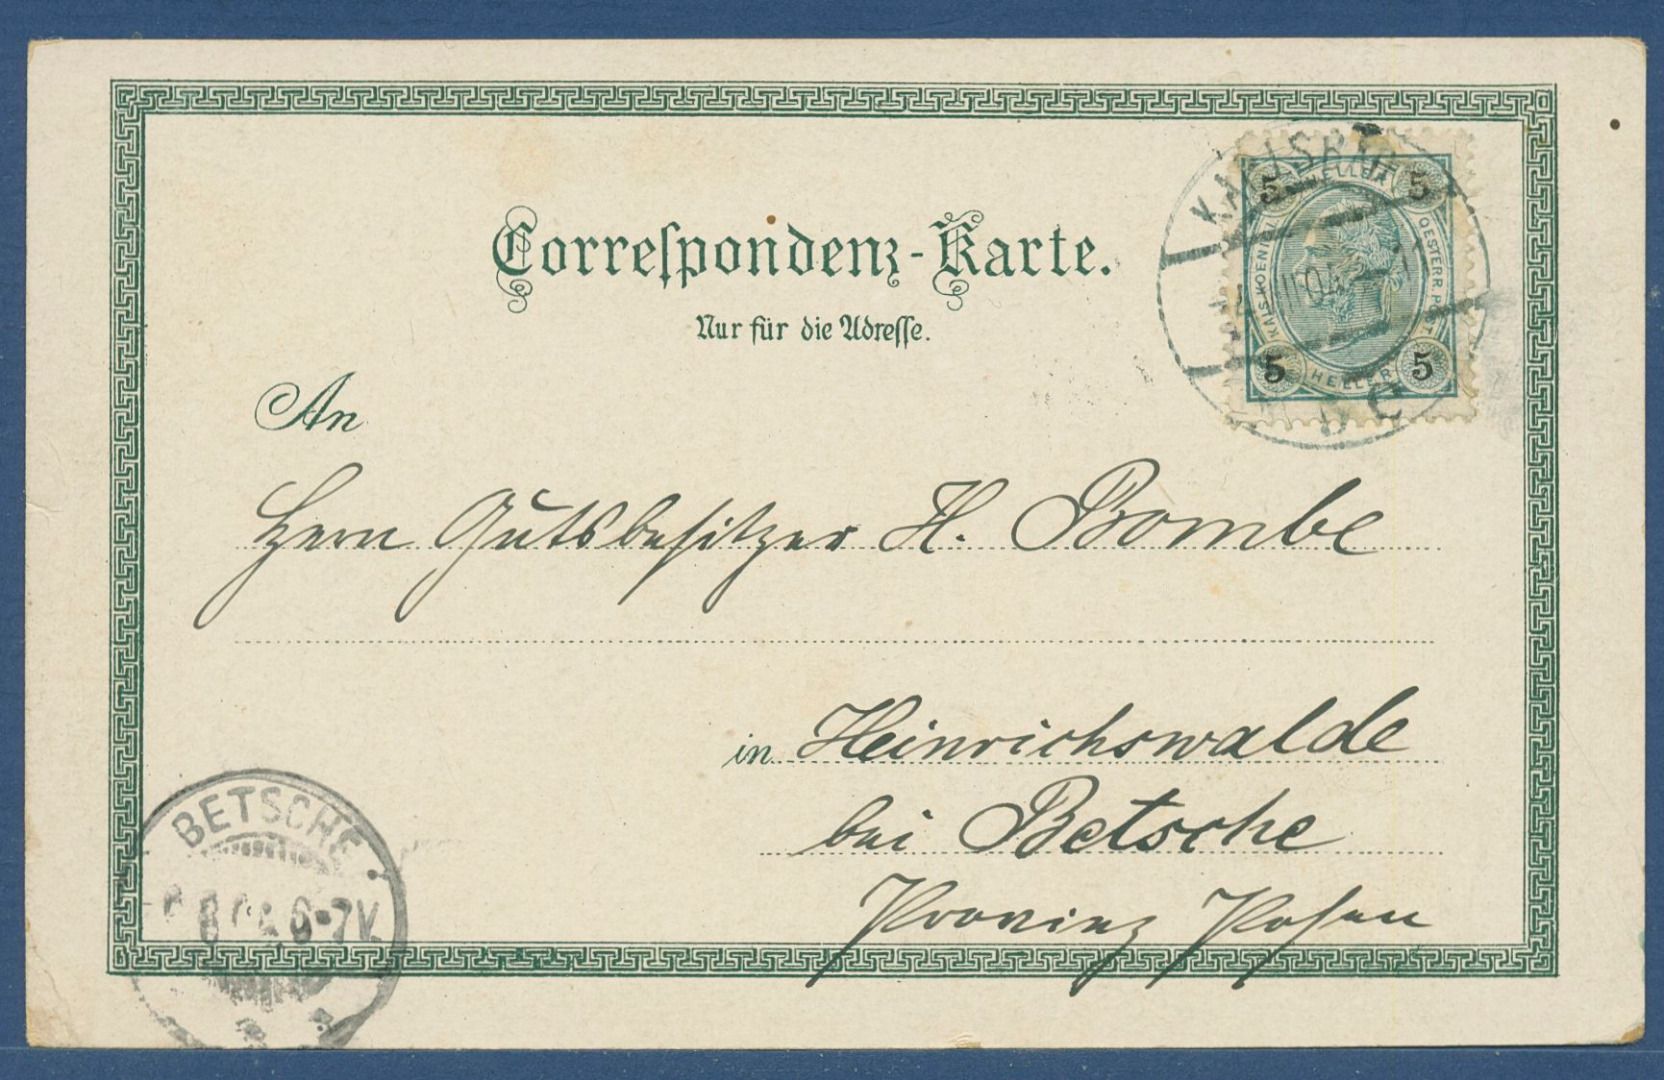 Correspondenz-Karte.
Nur für die Adresse.
5 HELLER 5
KAIS. KOENIGL. OESTERR. POST
5 HELLER 5
An
Herrn Gutsbesitzer H. Bombe
in Heinrichswalde
bei Betsche
Provinz Posen
BETSCHE
6-7V.